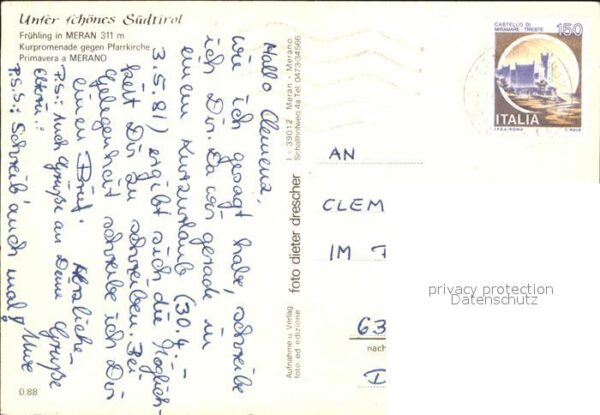 Unser schönes Südtirol
Frühling in MERAN 311 m
Kurpromenade gegen Pfarrkirche
Primavera a MERANO
Hallo Clemens,
wie ich gesagt habe, schreibe
ich Dir. Da wir gerade in
einem Kurzurlaub (30.4.-
3.5.81) ergibt sich die Möglich-
keit Dir zu schreiben. Bei
Gelegenheit schreibe ich Dir
einen Brief.
Herzliche
Grüße
Uwe
P.S.: Auch Grüße an Deine
Eltern!
P.S.S.: Schreib' auch mal!
0.88
foto dieter drescher
I - 39012 Meran - Merano
Schallhofweg 4a Tel. 0473-34566
Aufnahme u. Verlag
foto ed edizione
CASTELLO DI
MIRAMARE - TRIESTE
150
ITALIA
I.P.Z.S. ROMA
AN
CLEM
IM
63
nach
D
privacy protection
Datenschutz